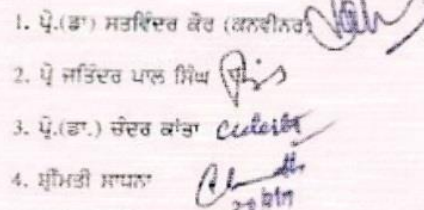 1. ਪ੍ਰੋ.(ਡਾ) ਸਤਵਿੰਦਰ ਕੌਰ (ਕਨਵੀਨਰ)
2. ਪ੍ਰੋ ਜਤਿੰਦਰ ਪਾਲ ਸਿੰਘ
3. ਪ੍ਰੋ.(ਡਾ.) ਚੰਦਰ ਕਾਂਤਾ
4. ਸ਼੍ਰੀਮਤੀ ਸਾਧਨਾ